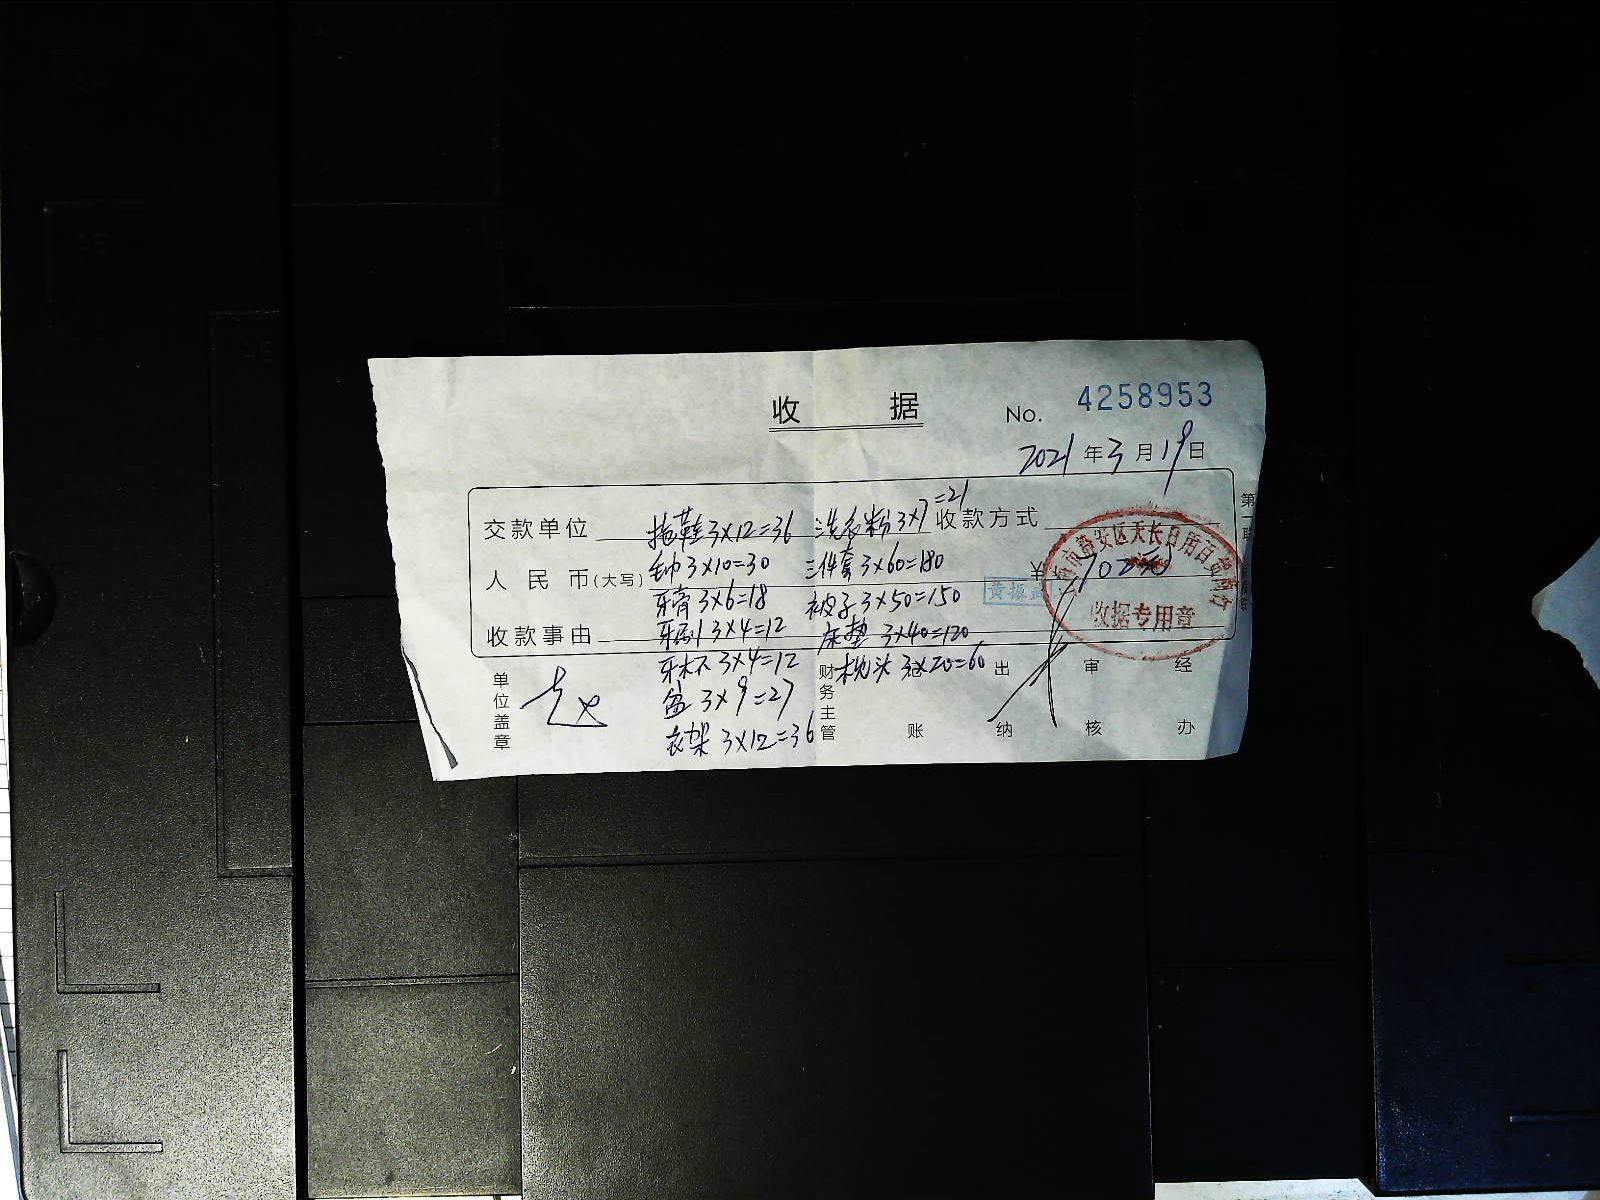 收 据
No. 4258953
2021年3月19日
交款单位
拖鞋3×12=36 洗衣粉3×7=21
收款方式
人民币(大写)
毛巾3×10=30 三件套3×60=180
¥702元
牙膏3×6=18 被子3×50=150
黄振武
收款事由
牙刷3×4=12 床垫3×40=120
牙杯3×4=12 枕头3×20=60
盆3×9=27
衣架3×12=36
安区天长日用百货商行
收据专用章
单位盖章
财务主管
总账
出纳
审核
经办
第 联